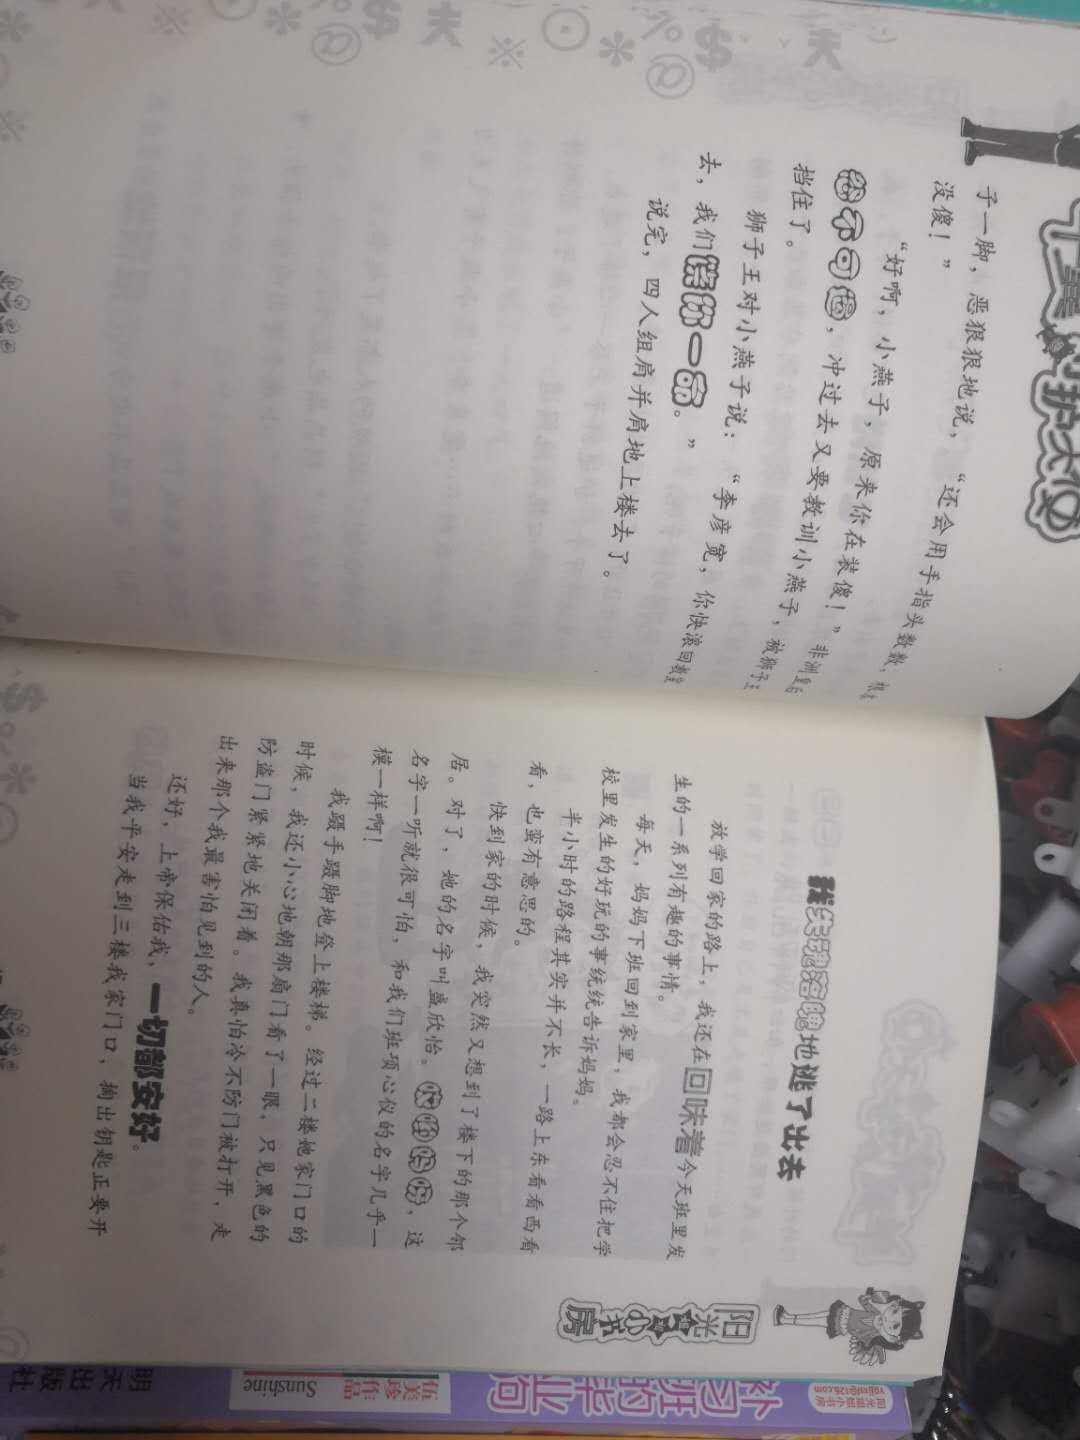 子一脚，恶狠狠地说，“还会用手指头数数，根本
没傻！”
“好啊，小燕子，原来你在装傻！”非洲皇后
忍不可遏，冲过去又要教训小燕子，被狮子王
挡住了。
狮子王对小燕子说：“李彦宽，你快滚回教室
去，我们饶你一命。”
说完，四人组肩并肩地上楼去了。
我失魂落魄地逃了出去
放学回家的路上，我还在回味着今天班里发
生的一系列有趣的事情。
每天，妈妈下班回到家里，我都会忍不住把学
校里发生的好玩的事统统告诉妈妈。
半小时的路程其实并不长，一路上东看看西看
看，也蛮有意思的。
快到家的时候，我突然又想到了楼下的那个邻
居。对了，她的名字叫盛欣怡。
名字一听就很可怕，和我们班项心仪的名字几乎一
模一样啊！
我蹑手蹑脚地登上楼梯。经过二楼她家门口的
时候，我还小心地朝那扇门看了一眼，只见黑色的
防盗门紧紧地关闭着。我真怕冷不防门被打开，走
出来那个我最害怕见到的人。
还好，上帝保佑我，一切都安好。
当我平安走到三楼我家门口，掏出钥匙正要开
阳光小书房
阳光姐姐小书房
补习班的毕业狗
伍美珍
作品
Sunshine
明天出版社